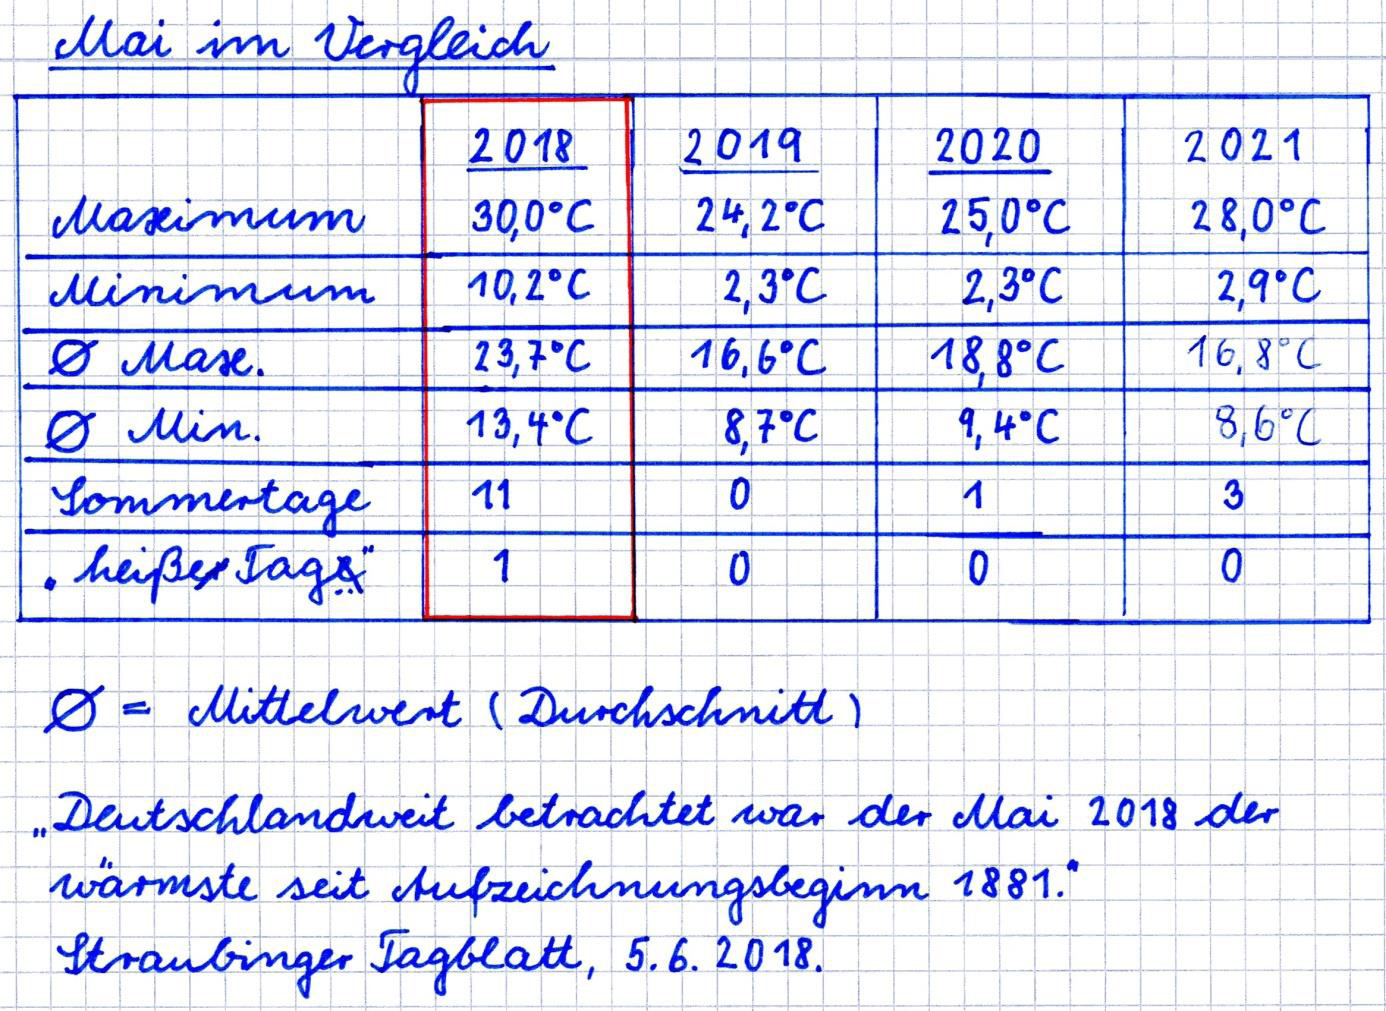 Mai im Vergleich
2018 2019 2020 2021
Maximum 30,0°C 24,2°C 25,0°C 28,0°C
Minimum 10,2°C 2,3°C 2,3°C 2,9°C
Ø Max. 23,7°C 16,6°C 18,8°C 16,8°C
Ø Min. 13,4°C 8,7°C 9,4°C 8,6°C
Sommertage 11 0 1 3
„heiße Tage“ 1 0 0 0
Ø = Mittelwert (Durchschnitt)
„Deutschlandweit betrachtet war der Mai 2018 der
wärmste seit Aufzeichnungsbeginn 1881.“
Straubinger Tagblatt, 5.6.2018.